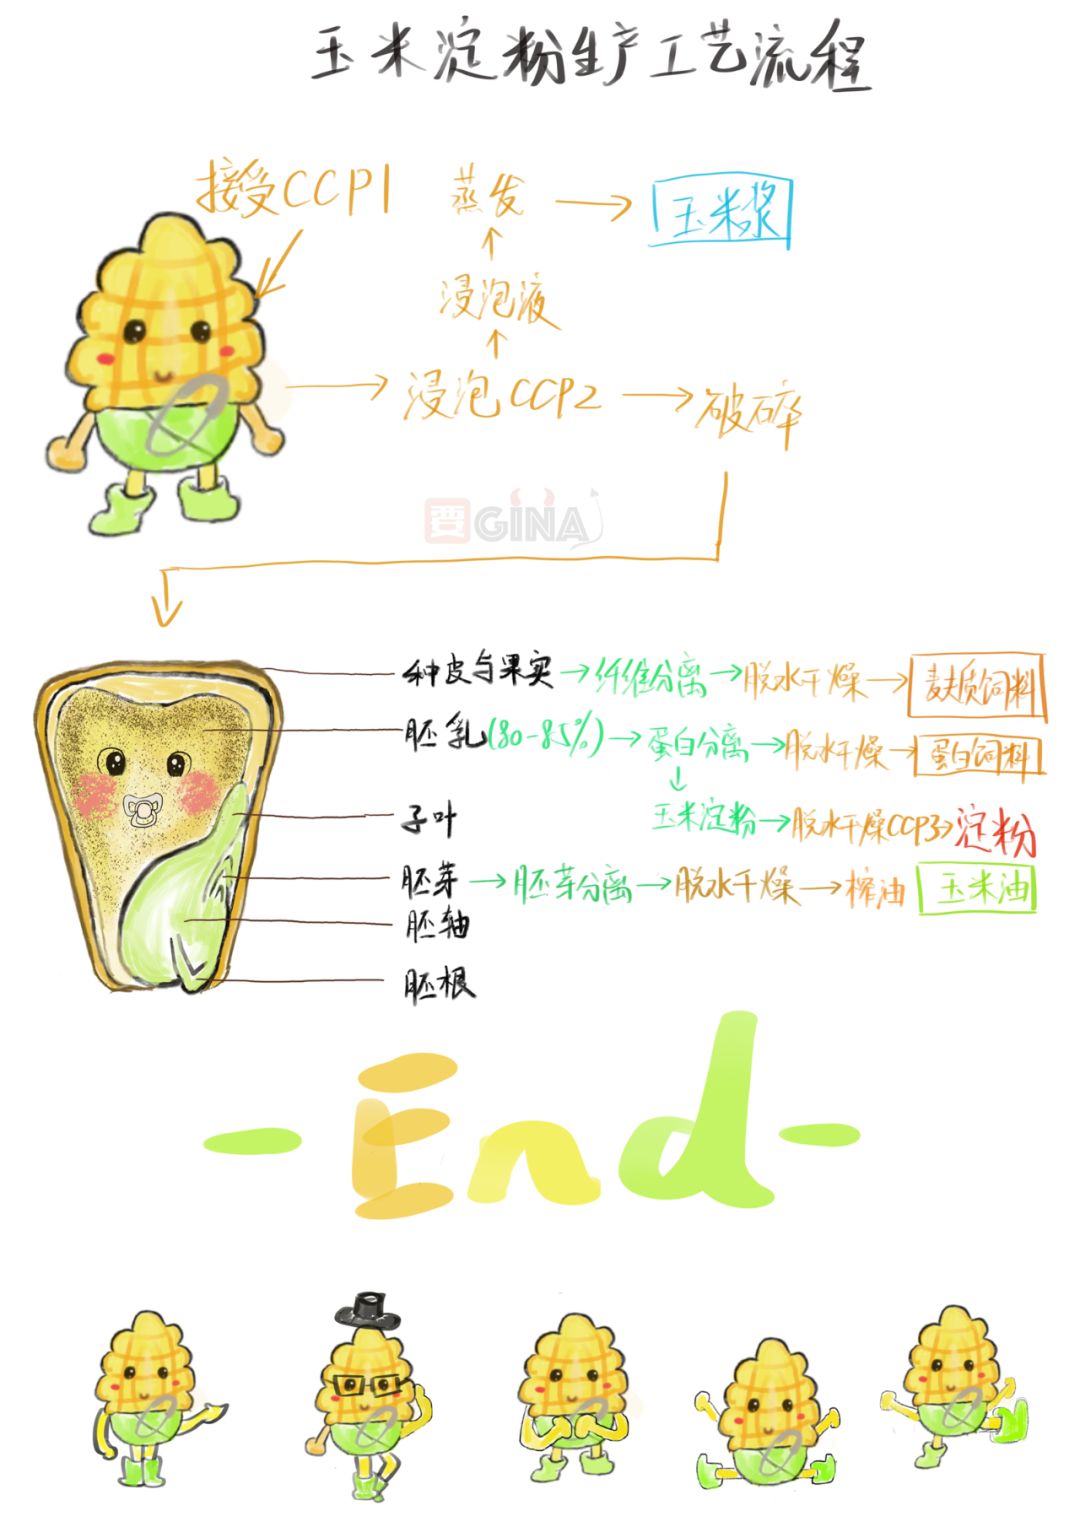 玉米淀粉生产工艺流程
接受CCP1
蒸发 → 玉米浆
↑
浸泡液
↑
→ 浸泡CCP2 → 破碎
GINA
种皮与果实→纤维分离→脱水干燥→麸质饲料
胚乳(80-85%)→蛋白分离→脱水干燥→蛋白饲料
↓
玉米淀粉→脱水干燥CCP3→淀粉
子叶
胚芽→胚芽分离→脱水干燥→榨油 玉米油
胚轴
胚根
-End-